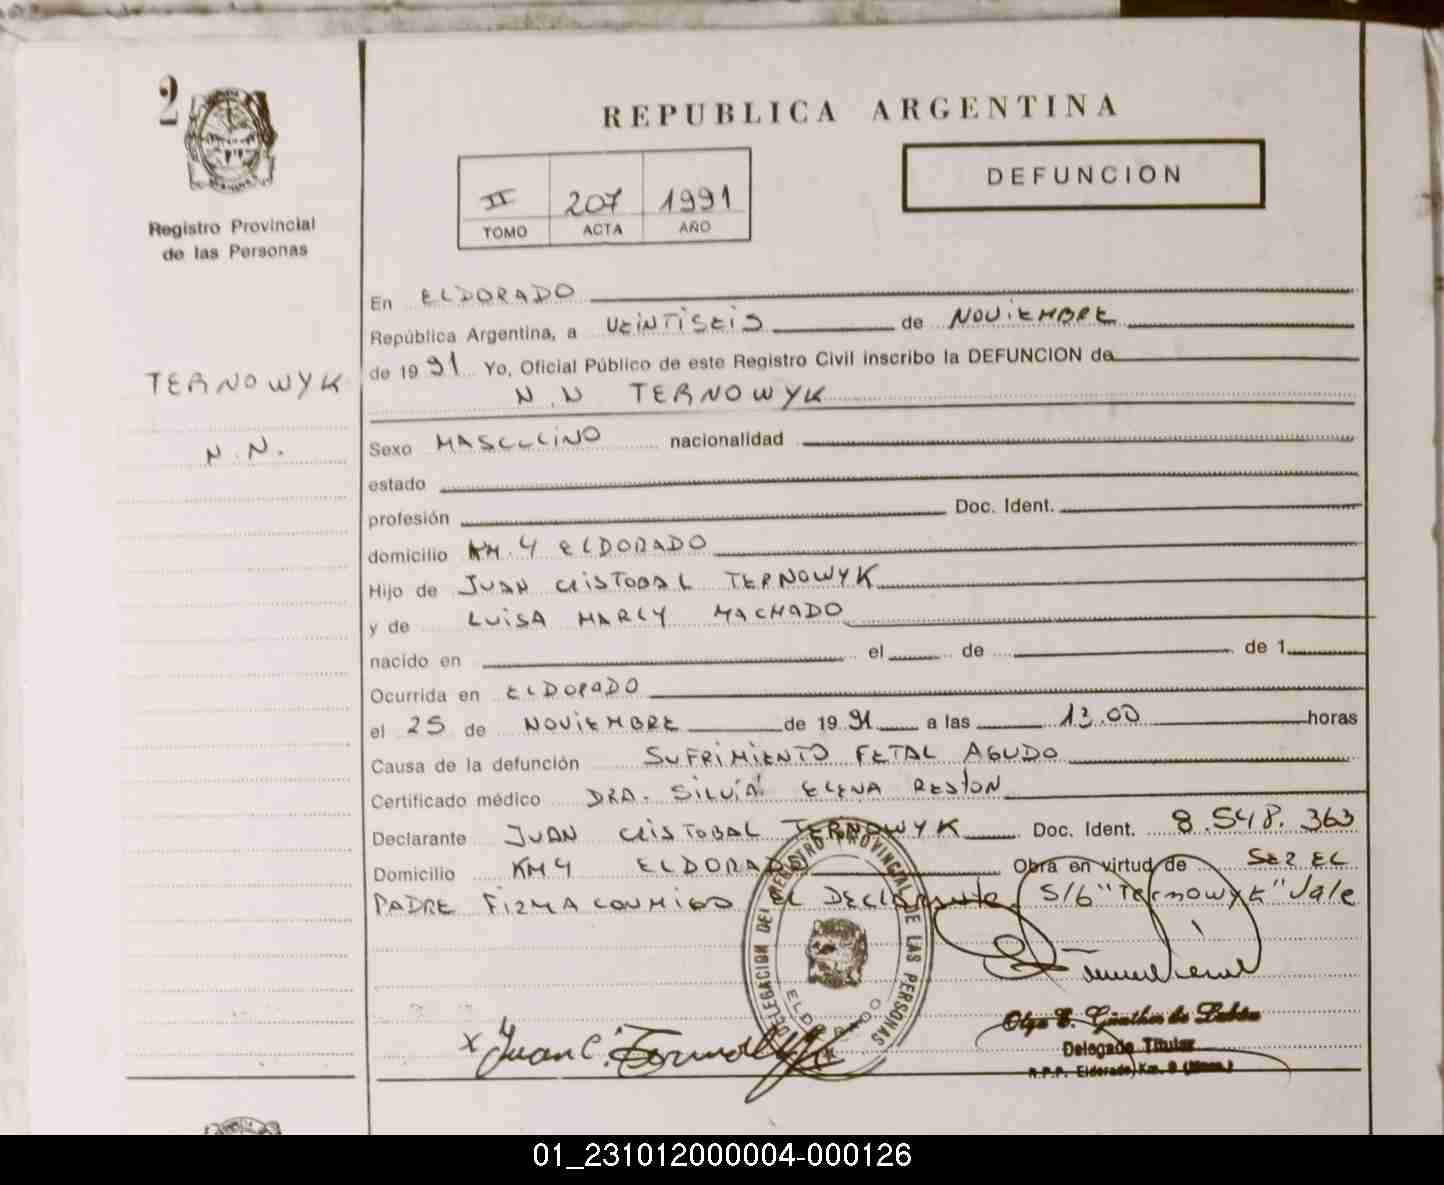 2
REPUBLICA ARGENTINA
DEFUNCION
II 207 1991
TOMO ACTA AÑO
Registro Provincial
de las Personas
TERNOWYK
N.N.
En ELDORADO
República Argentina, a VEINTISEIS de NOVIEMBRE
de 1991 Yo, Oficial Público de este Registro Civil inscribo la DEFUNCION de
N.N TERNOWYK
Sexo MASCULINO nacionalidad
estado
profesión Doc. Ident.
domicilio KM.4 ELDORADO
Hijo de JUAN CRISTOBAL TERNOWYK
y de LUISA MARLY MACHADO
nacido en el de de 1
Ocurrida en ELDORADO
el 25 de NOVIEMBRE de 1991 a las 13.00 horas
Causa de la defunción SUFRIMIENTO FETAL AGUDO
Certificado médico DRA. SILVIA ELENA RESTON
Declarante JUAN CRISTOBAL TERNOWYK Doc. Ident. 8.548.363
Domicilio KM4 ELDORADO Obra en virtud de SER EL
PADRE FIRMA CONMIGO EL DECLARANTE S/b "Ternowyk" Vale
DELEGACION DEL REGISTRO PROVINCIAL DE LAS PERSONAS
ELDORADO
x Juan C.
Olga E. Günther de
Delegada Titular
R.P.P. Eldorado, Km. 9
01_231012000004-000126